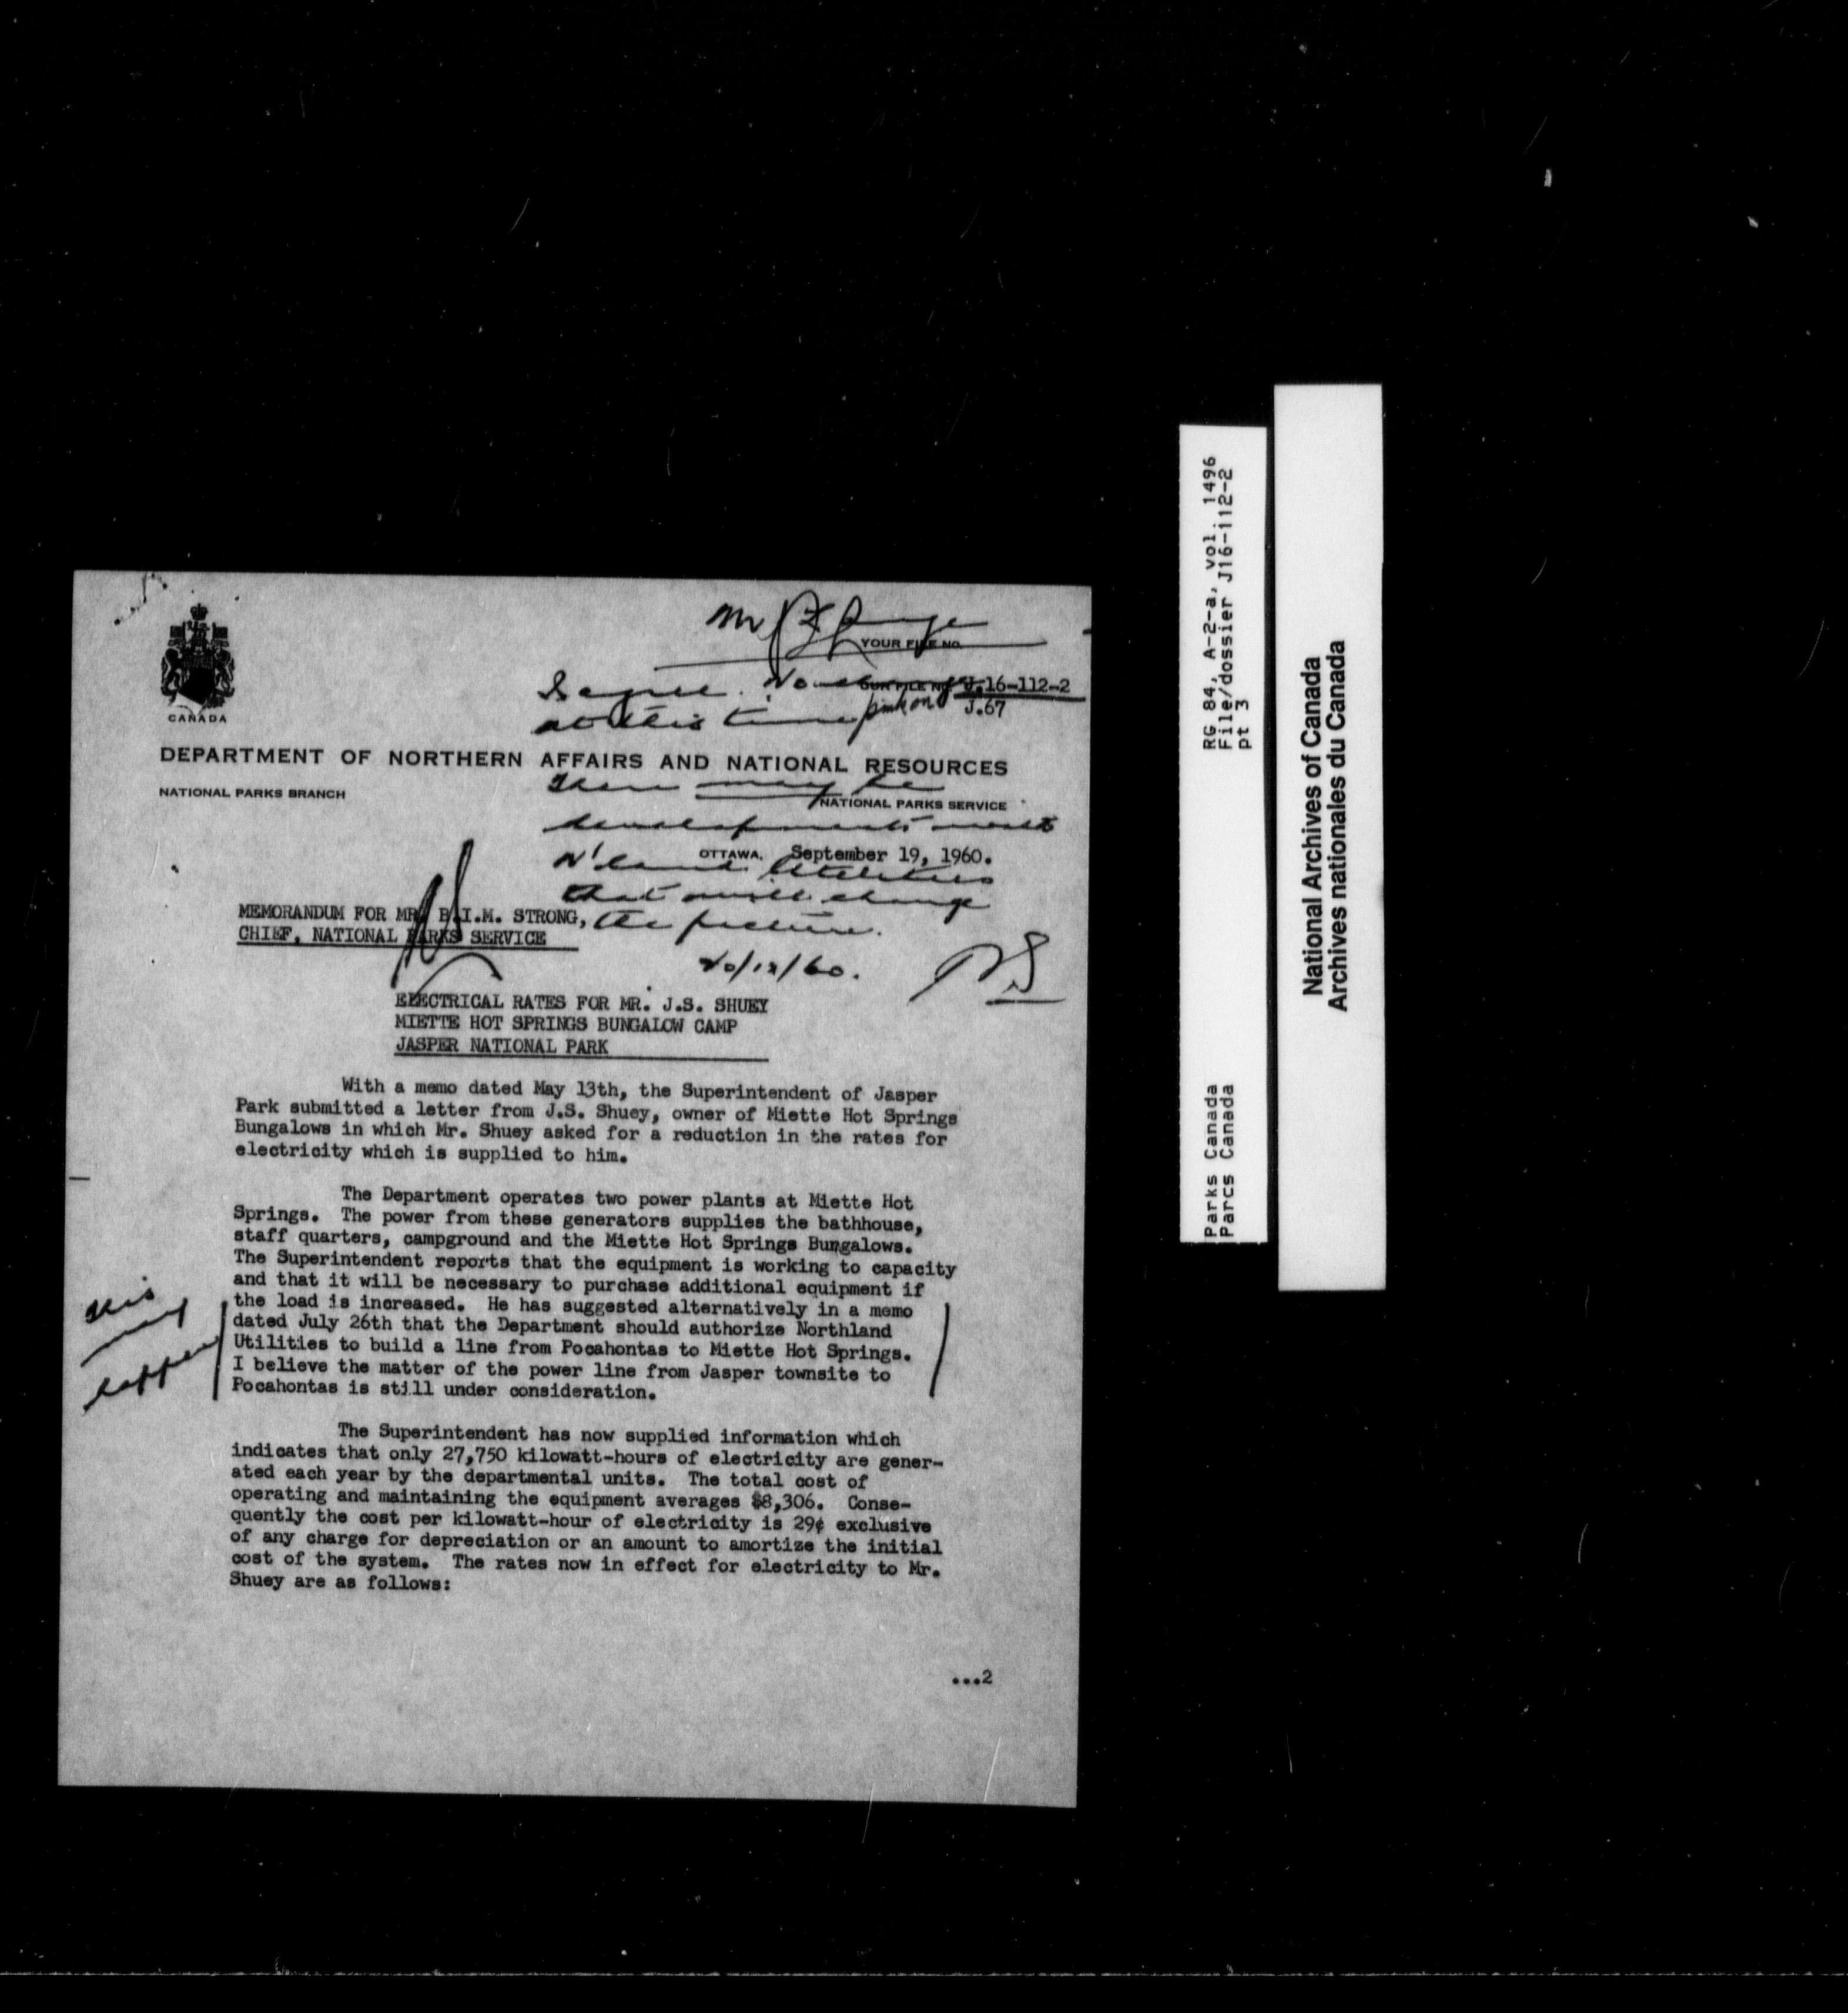 CANADA
YOUR FILE NO.
I agree. No change
OUR FILE NO. J.16-112-2
at this time
pink on
J.67
DEPARTMENT OF NORTHERN AFFAIRS AND NATIONAL RESOURCES
NATIONAL PARKS BRANCH
There may be
NATIONAL PARKS SERVICE
developments with
OTTAWA, September 19, 1960.
N'land Utilities
that will change
the picture.
MEMORANDUM FOR MR. B.I.M. STRONG,
CHIEF, NATIONAL PARKS SERVICE
ELECTRICAL RATES FOR MR. J.S. SHUEY
MIETTE HOT SPRINGS BUNGALOW CAMP
JASPER NATIONAL PARK
With a memo dated May 13th, the Superintendent of Jasper
Park submitted a letter from J.S. Shuey, owner of Miette Hot Springs
Bungalows in which Mr. Shuey asked for a reduction in the rates for
electricity which is supplied to him.
The Department operates two power plants at Miette Hot
Springs. The power from these generators supplies the bathhouse,
staff quarters, campground and the Miette Hot Springs Bungalows.
The Superintendent reports that the equipment is working to capacity
and that it will be necessary to purchase additional equipment if
the load is increased. He has suggested alternatively in a memo
dated July 26th that the Department should authorize Northland
Utilities to build a line from Pocahontas to Miette Hot Springs.
I believe the matter of the power line from Jasper townsite to
Pocahontas is still under consideration.
this
may
happen
The Superintendent has now supplied information which
indicates that only 27,750 kilowatt-hours of electricity are gener-
ated each year by the departmental units. The total cost of
operating and maintaining the equipment averages $8,306. Conse-
quently the cost per kilowatt-hour of electricity is 29¢ exclusive
of any charge for depreciation or an amount to amortize the initial
cost of the system. The rates now in effect for electricity to Mr.
Shuey are as follows:
...2
Parks Canada
Parcs Canada
RG 84, A-2-a, vol. 1496
File/dossier J16-112-2
pt 3
National Archives of Canada
Archives nationales du Canada